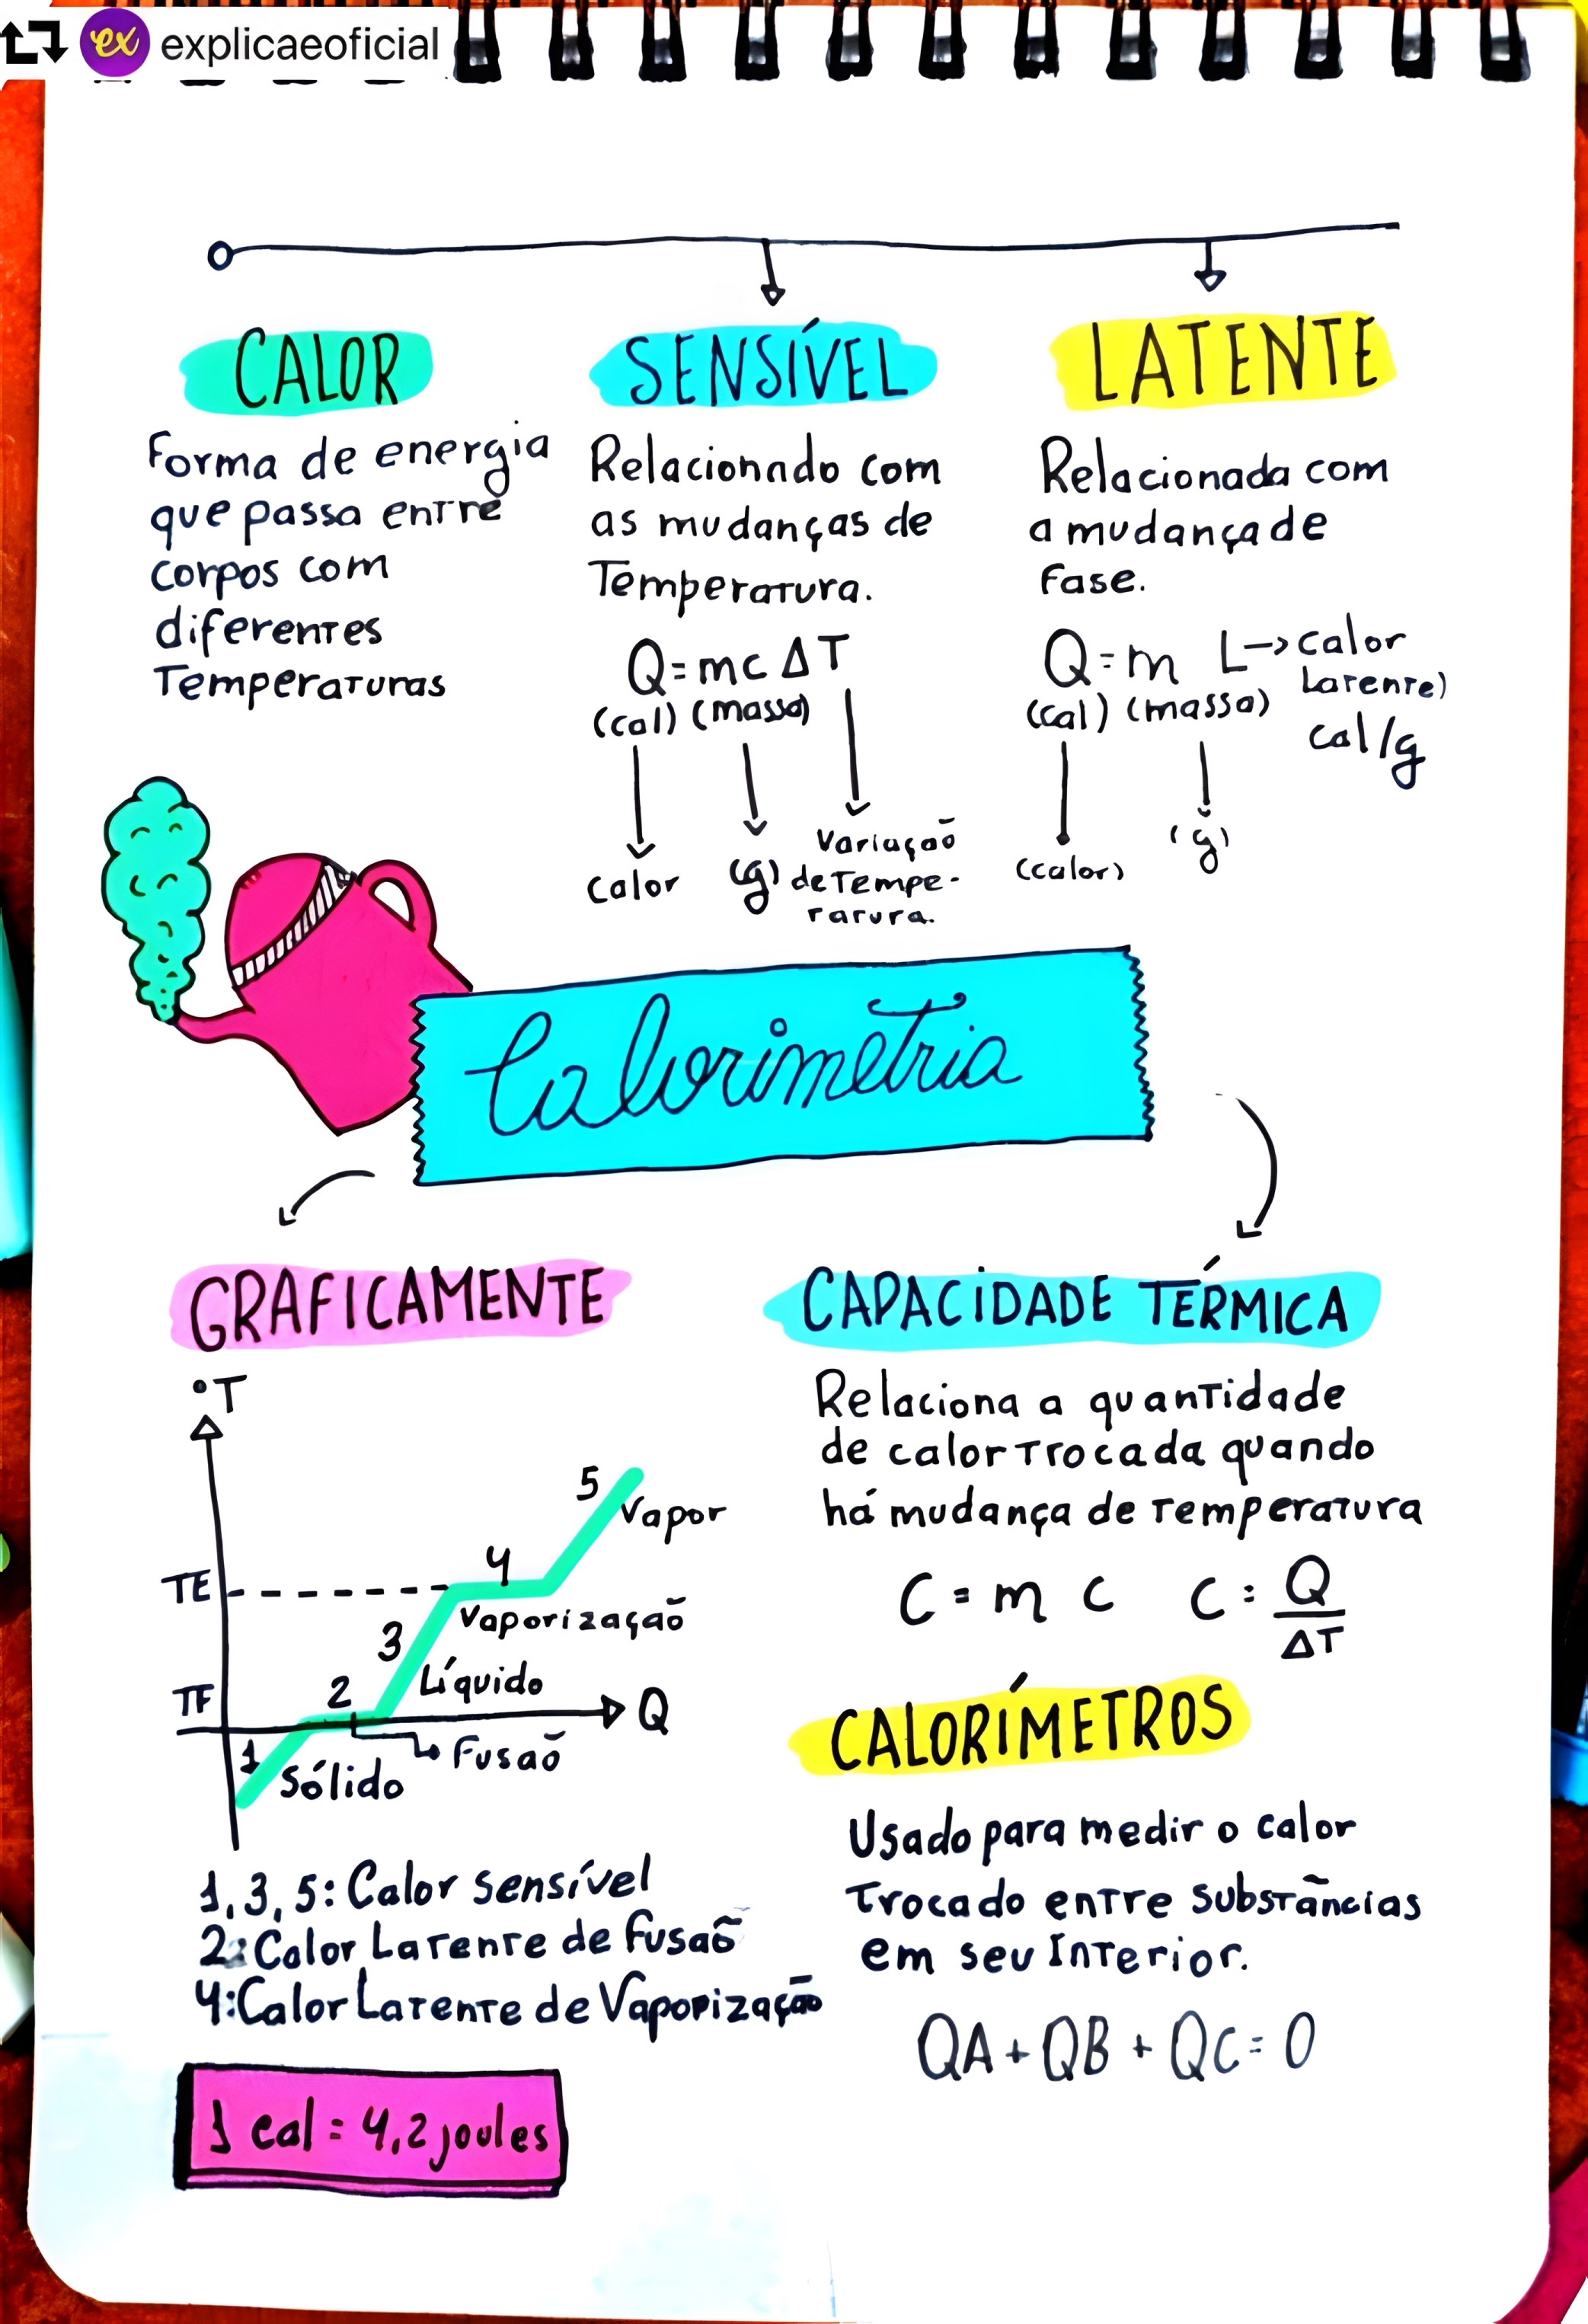 explicaeoficial
CALOR
Forma de energia
que passa entre
corpos com
diferentes
Temperaturas
SENSÍVEL
Relacionado com
as mudanças de
Temperatura.
Q=mcΔT
(cal) (massa)
Calor
(g)
Variação
de Tempe-
ratura.
LATENTE
Relacionada com
a mudança de
Fase.
Q=m L→calor
Latente)
(cal) (massa)
cal/g
(calor)
(g)
Calorimetria
GRAFICAMENTE
°T
5
Vapor
4
TE
Vaporização
3
Líquido
2
TF
Q
Fusão
1
Sólido
1,3,5: Calor sensível
2: Calor Latente de Fusão
4: Calor Latente de Vaporização
1 cal = 4,2 joules
CAPACIDADE TÉRMICA
Relaciona a quantidade
de calor trocada quando
há mudança de temperatura
C = m c C = Q/ΔT
CALORÍMETROS
Usado para medir o calor
Trocado entre substâncias
em seu Interior.
QA + QB + QC = 0